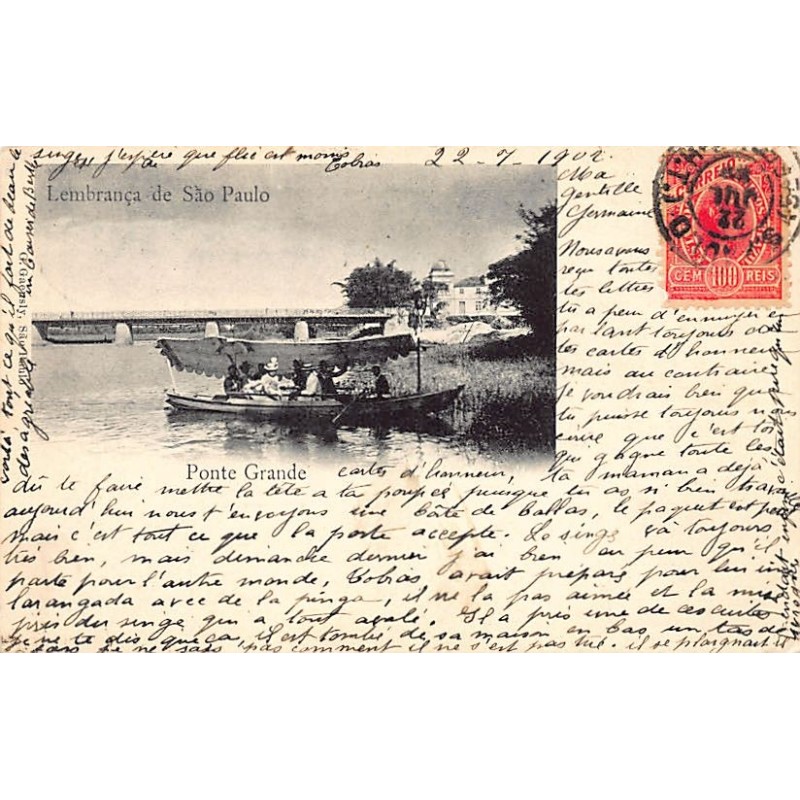 22-7-1902
Lembrança de São Paulo
Ma
gentille
Germaine
Nous avons
reçu toutes
tes lettres
tu a peur d'ennuyer en
par lant toujours de
tes cartes d'honneur
mais au contraire
je voudrais bien que
tu puisse toujours nous
ecrire que c'est toi
qui gagne toute les
Ponte Grande
cartes d'honneur, ta maman a déjà
dû te faire mettre la tête a ta poupée puisque tu as si bien
aujourd'hui nous t'envoyons une le paquet est
mais c'est tout ce que la poste accepte. Le singe va toujours
très bien, mais dimanche dernier j'ai bien eu peur qu'il
parte pour l'autre monde, Tobias avait préparé pour lui une
larangada avec de la pinga, il ne la pas aimée et la mis
près du singe qui a tout avalé. Il a pris une de ces cuites
je ne te dis que ça, il est tombé, de sa maison en bas un tas de
fois je ne sais pas comment il ne s'est pas tué. il se plaignait
singe, j'espère que elle est moins
Tobias
voilà tout ce qu'il fait de
désagréable
CORREIO
CEM 100 REIS
22